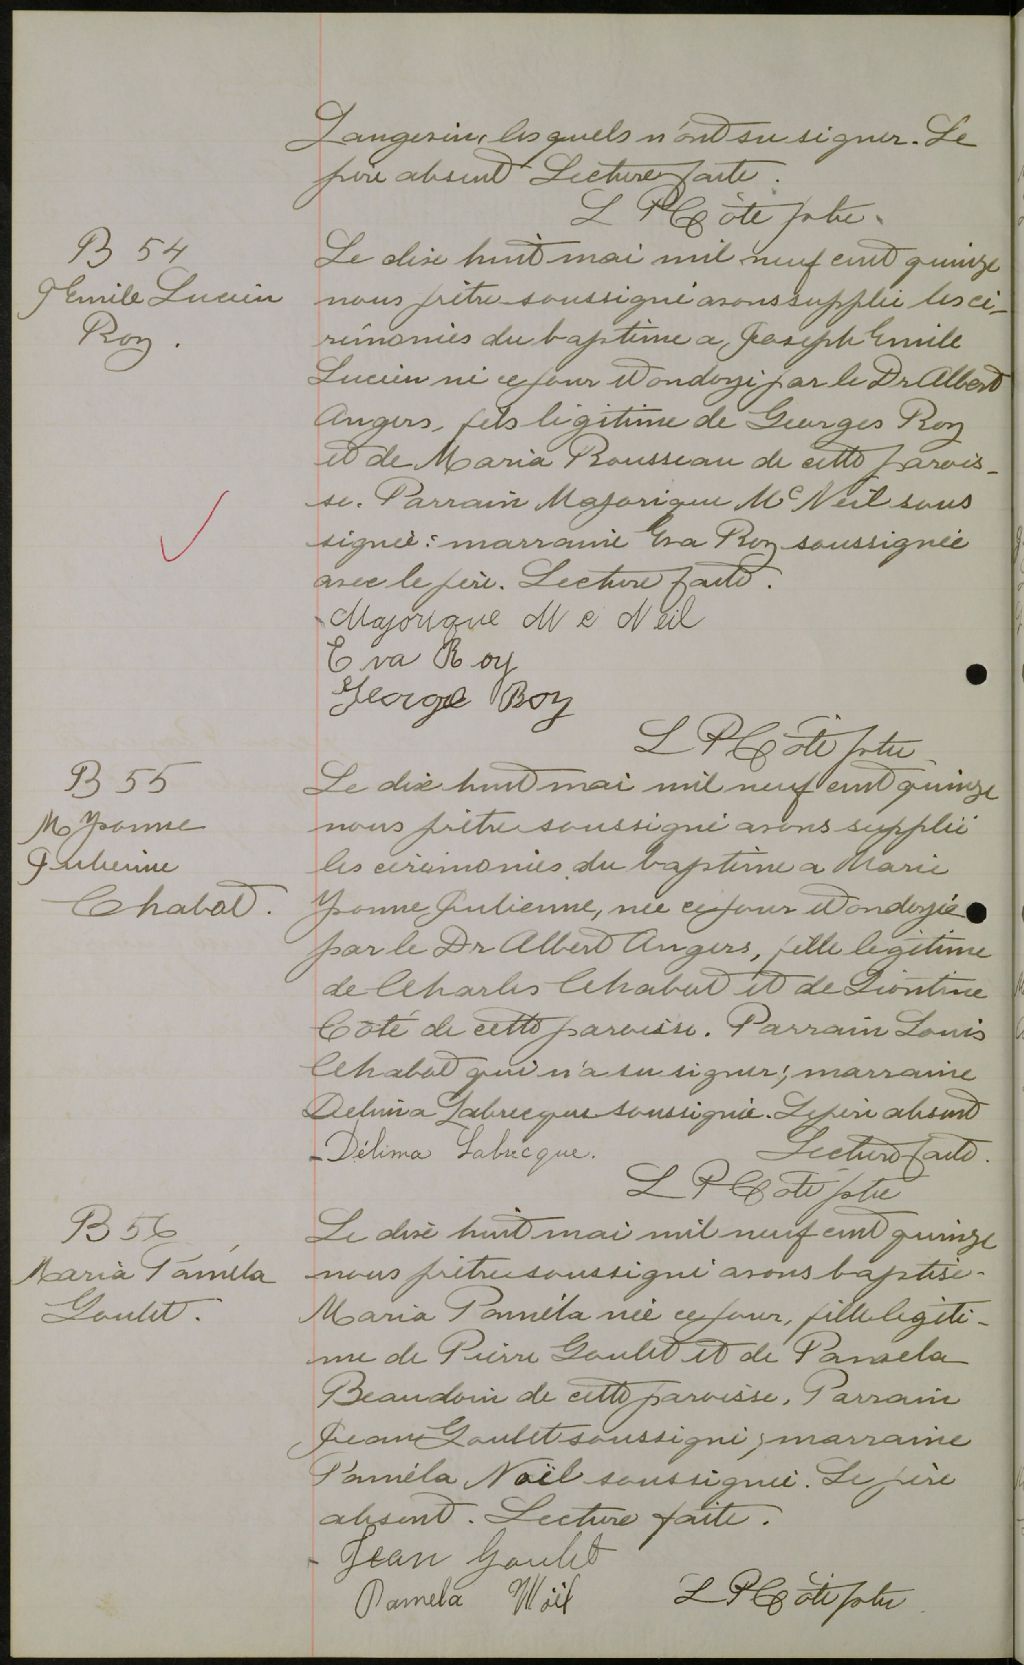 Langevin, lesquels n'ont su signer. Le
père absent Lecture faite.
L P Côté ptre.
B 54
J Emile Lucien
Roy.
Le dix huit mai mil neuf cent quinze
nous prêtre soussigné avons supplié les cé-
rémonies du baptême a Joseph Emile
Lucien né ce jour et ondoyé par le Dr Albert
Angers, fils légitime de Georges Roy
et de Maria Rousseau de cette parois-
se. Parrain Majorique McNeil sous
signé: marraine Eva Roy soussignée
avec le père. Lecture faite.
Majorique Mc Neil
Eva Roy
George Roy
L P Côté ptre
B 55
M Yvonne
Julienne
Chabot.
Le dix huit mai mil neuf cent quinze
nous prêtre soussigné avons supplié
les cérémonies du baptême a Marie
Yvonne Julienne, née ce jour et ondoyée
par le Dr Albert Angers, fille légitime
de Charles Chabot et de Léontine
Côté de cette paroisse. Parrain Louis
Chabot qui n'a su signer; marraine
Delima Labrecque soussignée. Le père absent
Délima Labrecque. Lecture faite.
L P Côté ptre
B 56
Maria Paméla
Goulet.
Le dix huit mai mil neuf cent quinze
nous prêtre soussigné avons baptisé
Maria Paméla née ce jour, fille légiti-
me de Pierre Goulet et de Pamela
Beaudoin de cette paroisse. Parrain
Jean Goulet soussigné; marraine
Paméla Noël soussignée. Le père
absent. Lecture faite.
Jean Goulet
Pamela Noël L P Côté ptre